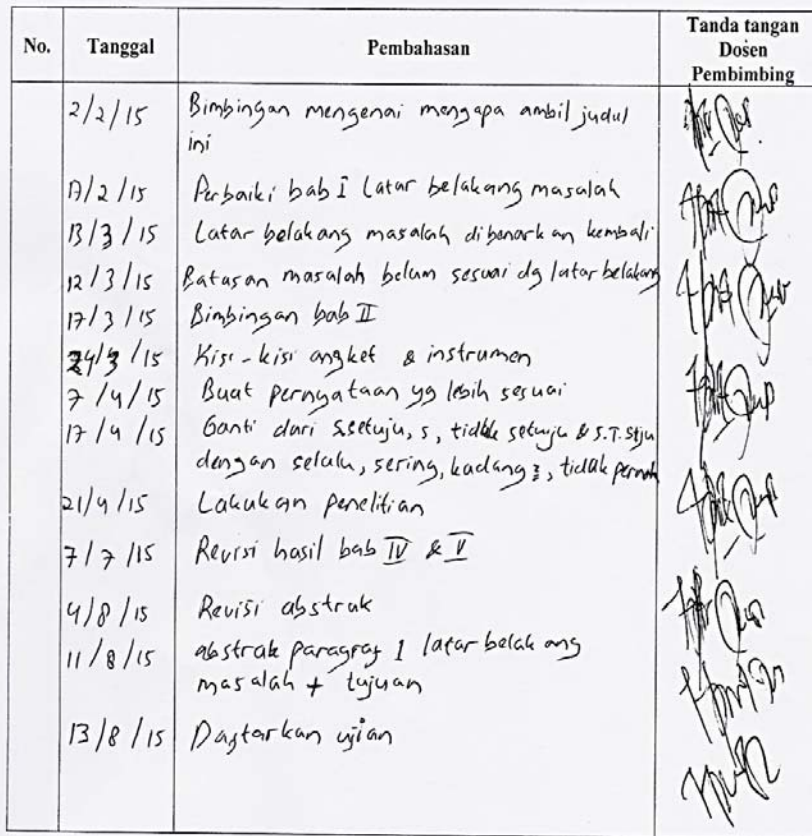 No. Tanggal Pembahasan Tanda tangan
Dosen
Pembimbing
2/2/15 Bimbingan mengenai mengapa ambil judul
ini
17/2/15 Perbaiki bab I Latar belakang masalah
13/3/15 Latar belakang masalah dibenarkan kembali
12/3/15 Batasan masalah belum sesuai dg latar belakang
17/3/15 Bimbingan bab II
24/3/15 Kisi-kisi angket & instrumen
7/4/15 Buat pernyataan yg lebih sesuai
17/4/15 Ganti dari s.setuju, s, tidak setuju & S.T. Stju
dengan selalu, sering, kadang2, tidak pernah
21/4/15 Lakukan penelitian
7/7/15 Revisi hasil bab IV & V
4/8/15 Revisi abstrak
11/8/15 abstrak paragraf 1 latar belakang
masalah + tujuan
13/8/15 Daftarkan ujian